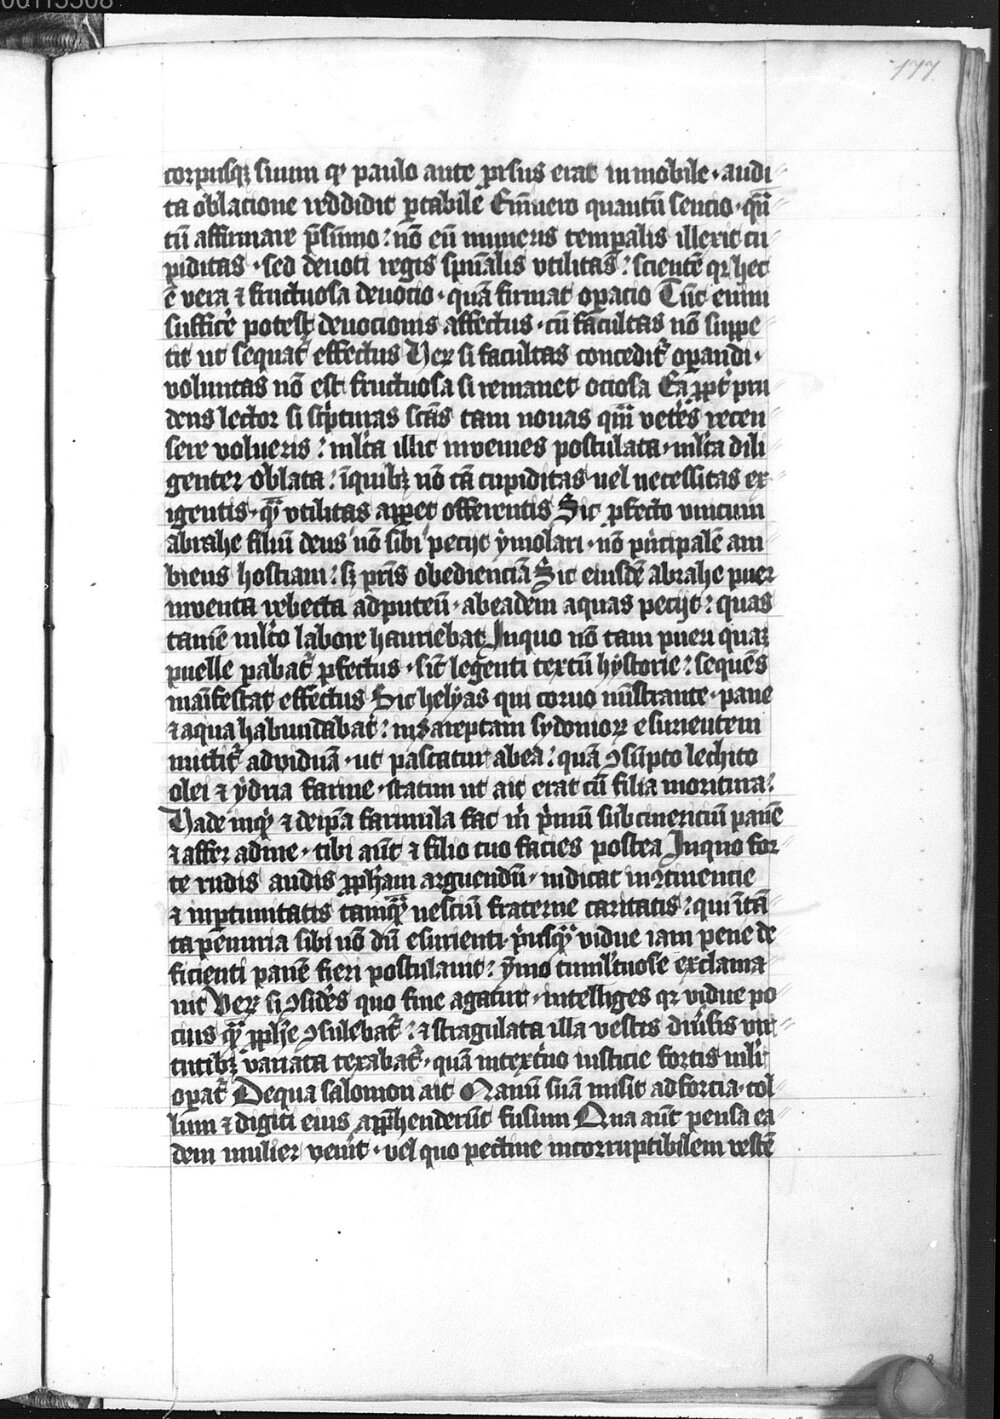 00115308
177
corpusq; suum qͥ paulo ante ꝓrsus erat inmobile · audi
ta oblacione reddidit portabile Enīuero quantū sencio · qn̄
tū affirmare p̄sumo : nō eū muneris temꝑalis illexit cu
piditas · sed deuoti regis spūalis vtilitas : scientē qꝛ hec
ē vera ⁊ fructuosa deuocio · quā firmat oꝑacio Tūc enim
sufficē potest deuocionis affectus · cū facultas nō suppe
tit ut sequat᷑ effectus Veꝝ si facultas concedit᷑ oꝑandi ·
voluntas nō est fructuosa si remanet ociosa Ea ꝓpt̓ pru
dens lector si scͥpturas scās tam nouas qm̄ vetēs recen
sere volueris : ml̓ta illic inuenies postulata · ml̓ta dili
genter oblata : ī quibꝫ nō tā cupiditas uel necessitas ex
igentis · qͣ vtilitas apꝑet offerentis Sic ꝓfecto vnicum
abrahe filiū deus nō sibi pecijt ẏmolari · nō pͥncipalē am
biens hostiam : sꝫ pr̄is obedienciā Sic eiusdē abrahe puer
inuenta rebecca ad puteū · ab eadem aquas pecijt : quas
tamē ml̓to labore hauriebat In quo nō tam pueri quaꝫ
puelle ꝑabat᷑ ꝓfectus · sic̄ legenti textū hẏstorie : sequēs
māifestat effectus Sic helẏas qui coruo mīstrante · pane
⁊ aqua habundabat : in sareptam sẏdonioꝝ esurientem
mittit᷑ ad viduā · ut pascatur ab ea : quā ꝯsūpto lechito
olei ⁊ ẏdria farine · statim ut ait erat cū filia moritura :
Vade inqͥt ⁊ de ip̄a farinula fac m̓ pͥmū subcinericiū panē
⁊ affer ad me · tibi aūt ⁊ filio tuo facies postea In quo for
te rudis audis ꝓph̄am arguendū · iudicat incōtinentie
⁊ inportunitatis tamqͣ nesciū fraterne caritatis : qui ī tā
ta penuria sibi nō dū esurienti · pͥusqͣ vidue iam pene de
ficienti panē fieri postulauit : ẏmo tumltuose exclama
uit Veꝝ si ꝯsidēs quo fine agatur · intelliges qꝛ vidue po
cius qͣ ꝓph̄e ꝯsulebat᷑ : ⁊ stragulata illa vestis diu̓sis vir
tutibꝫ variata texabat᷑ · quā intext̓no iusticie fortis ml̓r
oꝑat᷑ De qua salomon ait Manū suā misit ad forcia · col
lum ⁊ digiti eius app̄henderūt fusum Qua aūt pensa ea
dem mulier neuit · vel quo pectine incorruptibilem vestē